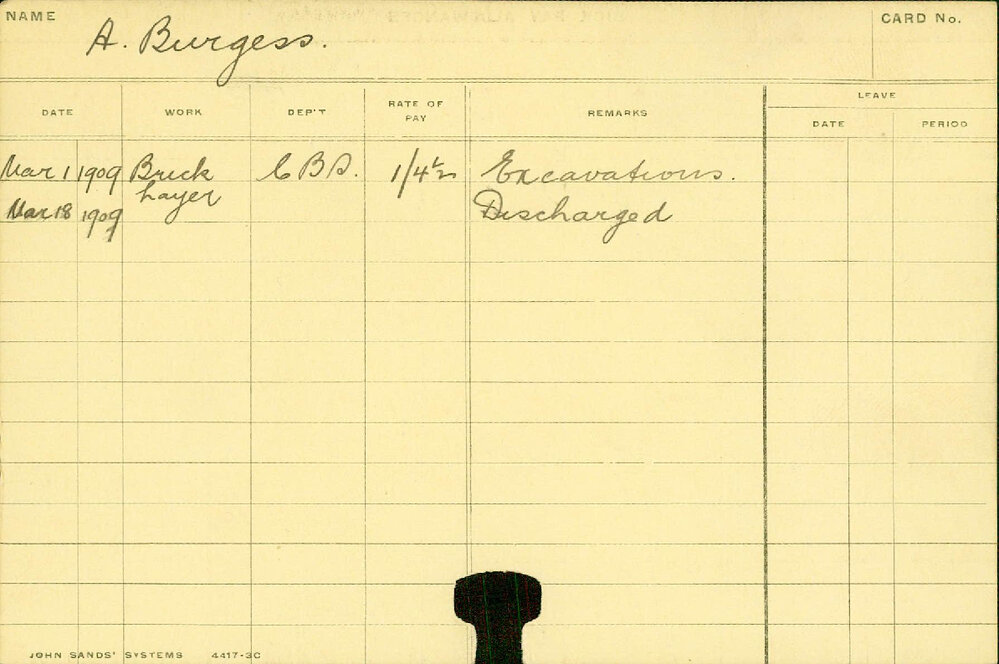 NAME
A. Burgess.
CARD No.
DATE WORK DEP'T RATE OF PAY REMARKS LEAVE
DATE PERIOD
Mar 1 1909 Brick C B D. Excavations.
layer
Mar 18 1909 Discharged
JOHN SANDS' SYSTEMS 4417-3C